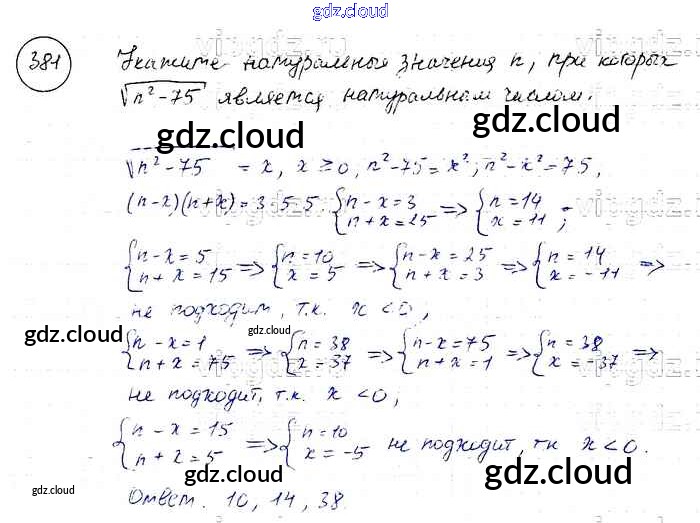 gdz.cloud
381 Укажите натуральные значения n, при которых
√(n²-75) является натуральным числом.
gdz.cloud gdz.cloud
√(n²-75) = x, x ≥ 0, n²-75 = x²; n²-x² = 75,
(n-x)(n+x) = 3·5·5. {n-x=3 n+x=25 => {n=14 x=11 ;
{n-x=5 n+x=15 => {n=10 x=5 => {n-x=25 n+x=3 => {n=14 x=-11 =>
не подходит, т.к. x<0,
gdz.cloud gdz.cloud gdz.cloud
{n-x=1 n+x=75 => {n=38 x=37 => {n-x=75 n+x=1 => {n=38 x=-37 =>
не подходит, т.к. x<0;
{n-x=15 n+x=5 => {n=10 x=-5 не подходит, тк x<0.
gdz.cloud gdz.cloud gdz.cloud
Ответ. 10, 14, 38.